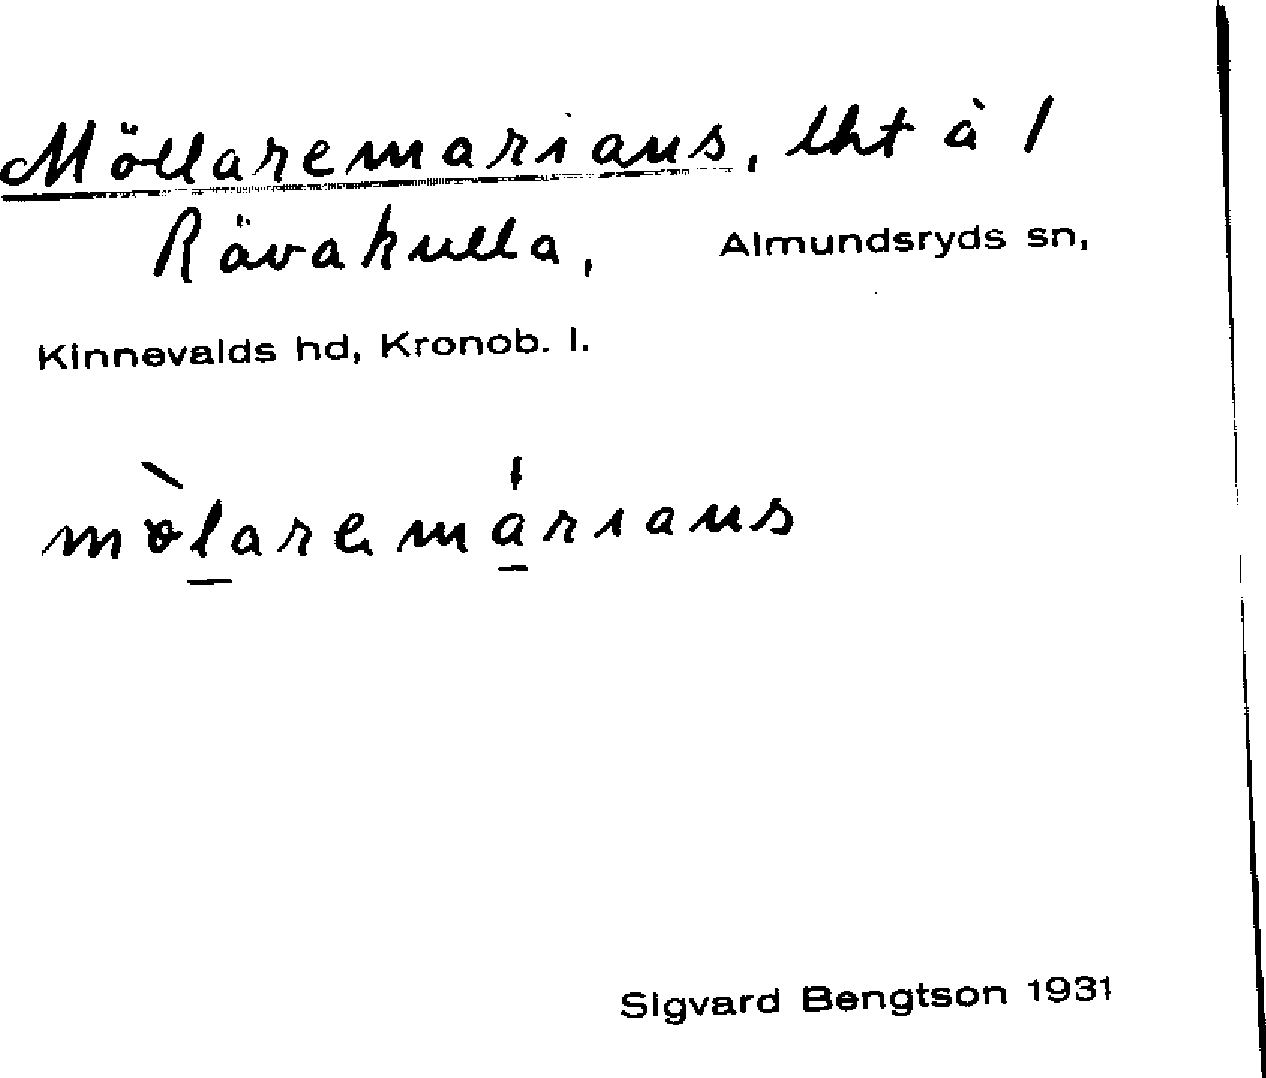 Möllaremarians, lht å 1
Rävakulla, Almundsryds sn,
Kinnevalds hd, Kronob. l.
mòlaremárians
Sigvard Bengtson 1931